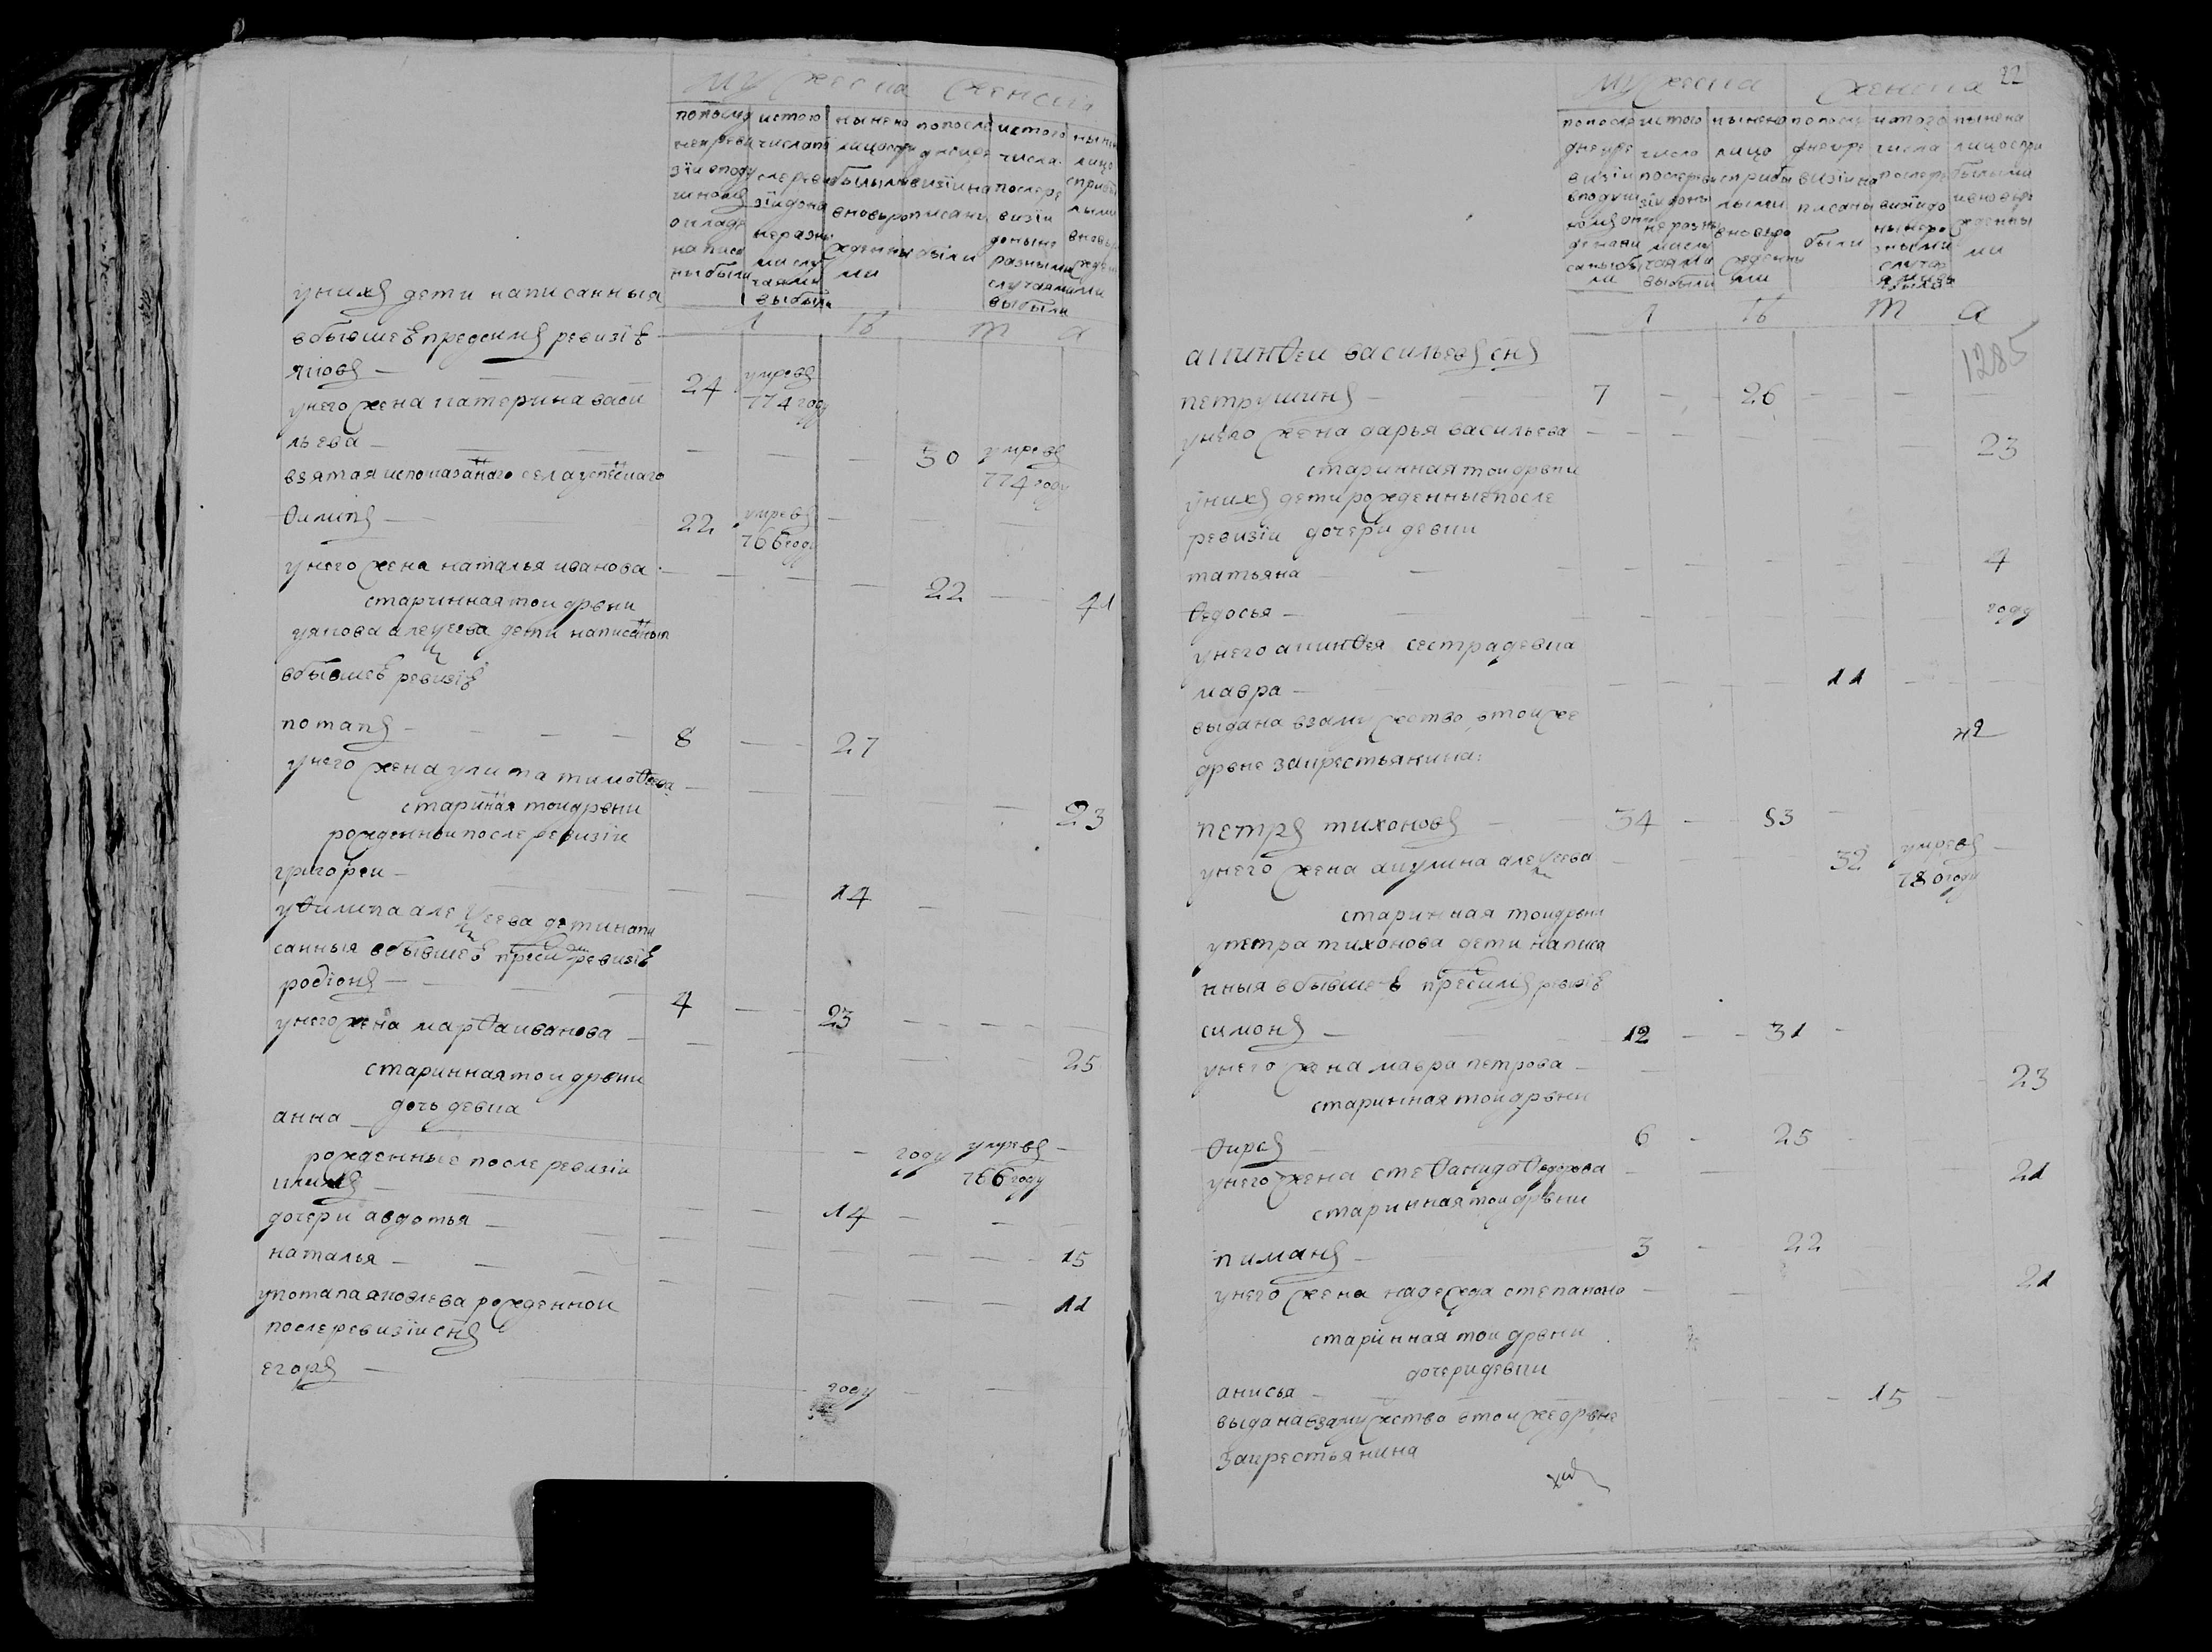 мужеска женска
попослѣ
ней реви
зіи вподу
шномъ
окладѣ
написа
ны были
истого
числапо
слереви
зіидоны
неразны
ми слу
чаями
выбыли
нынена
лицоспри
былыми
вновьро
жденны
ми
попослѣ
днеире
визіина
писаны
были
истого
числа
послере
визіи
доныне
разными
случаями
выбыли
лицо
сприбы
лыми
вновь
ми
Л Ѣ т а
унихъ дети написанныя
вбывшеѣ предсимъ ревизіѣ
яковъ — 24 умревъ 774 году
унего жена катерина васи
льева — 30 умревъ 774 году
взятая испоказанного села успенскаго
Ѳилипъ — 22 умревъ 766 году
унего жена наталья иванова — 22 — 41
старинная тои дрвни
уякова алеѯеева дети написанныя
вбывшеѣ ревизіѣ
потапъ — 8 — 27
унего жена улита тимоѲеева — 23
старинная тоидрвни
рожденнои после ревизіи
григореи — 14
уѲилипа алеѯеева детинапи
санныя вбывшеѣ пресимъ ревизіѣ
родіонъ — 4 — 23
унего жена марѲа иванова — 25
старинная тои дрвни
дочь девка
анна — году умревъ 766 году
рожденные после ревизіи
климъ — 14
дочери авдотья — 15
наталья — 11
употапа яковлева рожденнои
послеревизіи снъ
егоръ — году
22
мужеска женска
попосле
днеире
визіи
вподуш
номъ окла
де напи
саны бы
ли
истого
число
послереви
зіидоны
не разны
мислу
чаями
выбыли
нынена
лицо
сприбы
лыми
вновьро
жденны
ми
попосле
днеире
визіина
писаны
были
истого
числа
послере
визіидо
ныне ра
зными
случа
ямивы
были
нынена
лицоспри
былыми
ивновьро
жденны
ми
Л Ѣ т а
1285
акинѲеи васильевъ снъ
петрушинъ — 7 — 26
унего жена дарья васильева — 23
стариннаятоидрвни
унихъ детирожденныепосле
ревизіи дочери девки
татьяна — 4
Ѳедосья — году
унего акинѲея сестрадевка
мавра — 11
выдана взамужство втоиже
дрвне закрестьянина:
петръ тихоновъ — 34 — 53
унего жена акулина алеѯеева — 32 умревъ 780 году
старинная тоидрвни
упетра тихонова дети написа
нныя вбывшеѣ пресимъ ревизіѣ
симонъ — 12 — 31
унего жена мавра петрова — 23
старинная тоидрвни
Ѳирсъ — 6 — 25
унего жена стеѲанида Ѳедорова — 21
старинная тоидрвни
пиманъ — 3 — 22
унего жена надежда степанова — 21
старинная тои дрвни
дочеридевки
анисья — 15
выдана взамужство втоижедрвне
закрестьянина